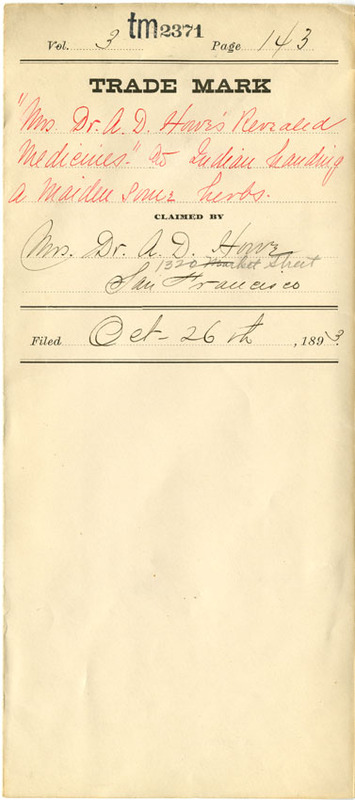 tm2371
Vol. 3 Page 143
TRADE MARK
"Mrs. Dr. A. D. Howe's Revealed
Medicines." An Indian handing
a Maiden some herbs.
CLAIMED BY
Mrs. Dr. A. D. Howe
1320 Market Street
San Francisco
Filed Oct- 26th, 1893.